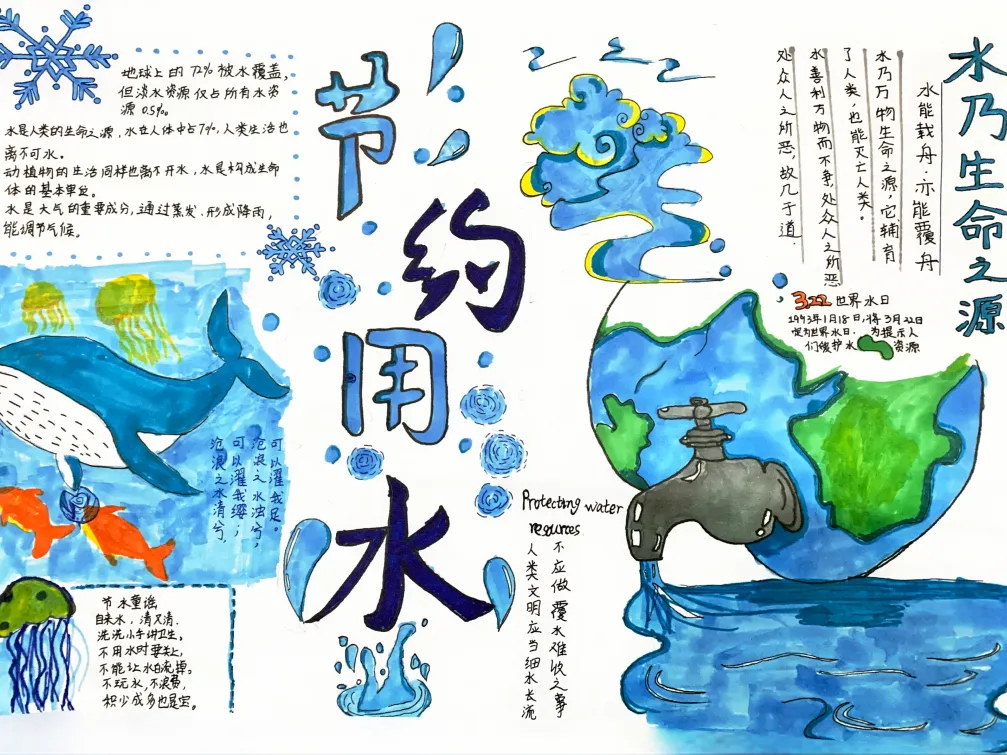 地球上的72%被水覆盖,
但淡水资源仅占所有水资
源0.5%
水是人类的生命之源,水在人体中占7%,人类生活也
离不可水。
动植物的生活同样也离不开水,水是构成生命
体的基本单位。
水是大气的重要成分,通过蒸发.形成降雨,
能调节气候。
节
约
用
水
水乃生命之源
水能载舟·亦能覆舟
水乃万物生命之源,它辅育
了人类,也能灭亡人类。
水善利万物而不争,处众人之所恶
处众人之所恶,故几于道.
3.22世界水日
1993年1月18日,将3月22日
定为世界水日.为提示人
们保护水资源
可以濯我足。
沧浪之水浊兮,
可以濯我缨;
沧浪之水清兮,
Protecting water
resources
不应做覆水难收之事
人类文明应当细水长流
节水童谣
自来水,清又清.
洗洗小手讲卫生。
不用水时要关上,
不能让水白流掉。
不玩水,不浪费,
积少成多也是宝。